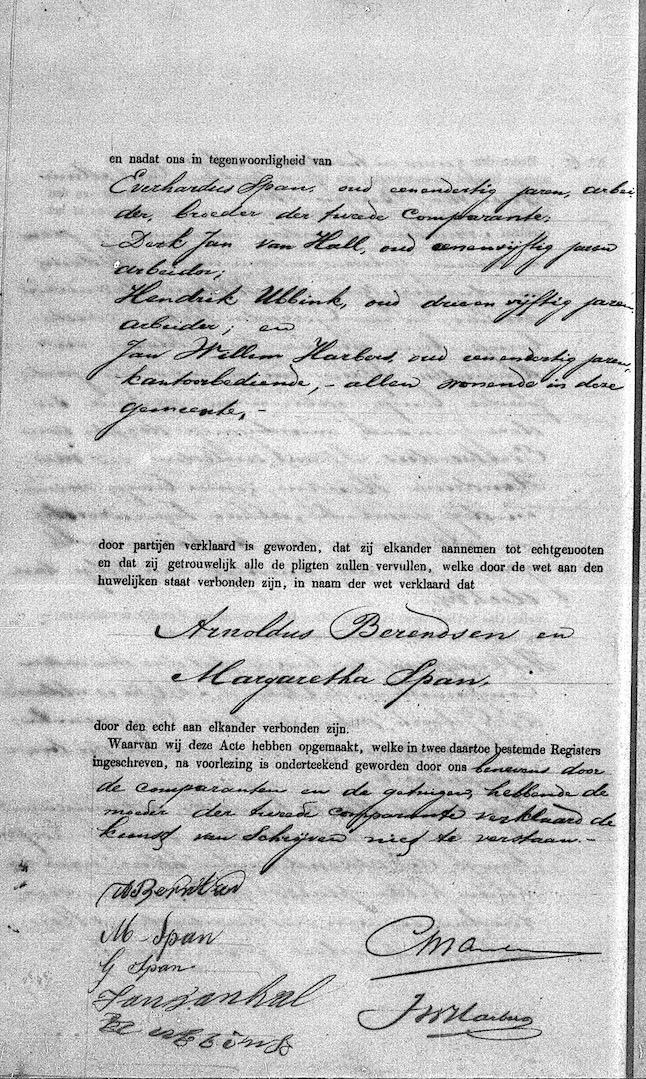 en nadat ons in tegenwoordigheid van
Everhardus Span, oud eenendertig jaren, arbei-
der, broeder der tweede comparante;
Derk Jan van Hall, oud eenenvijftig jaren
arbeider;
Hendrik Ubbink, oud drieenvijftig jaren
arbeider; en
Jan Willem Harbers, oud eenendertig jaren,
kantoorbediende, - allen wonende in deze
gemeente, -
door partijen verklaard is geworden, dat zij elkander aannemen tot echtgenooten
en dat zij getrouwelijk alle de pligten zullen vervullen, welke door de wet aan den
huwelijken staat verbonden zijn, in naam der wet verklaard dat
Arnoldus Berendsen en
Margaretha Span,
door den echt aan elkander verbonden zijn.
Waarvan wij deze Acte hebben opgemaakt, welke in twee daartoe bestemde Registers
ingeschreven, na voorlezing is onderteekend geworden door ons benevens door
de comparanten en de getuigen, hebbende de
moeder der tweede comparante verklaard de
kunst van schrijven niet te verstaan. -
M Span
G Span
JWHarbers